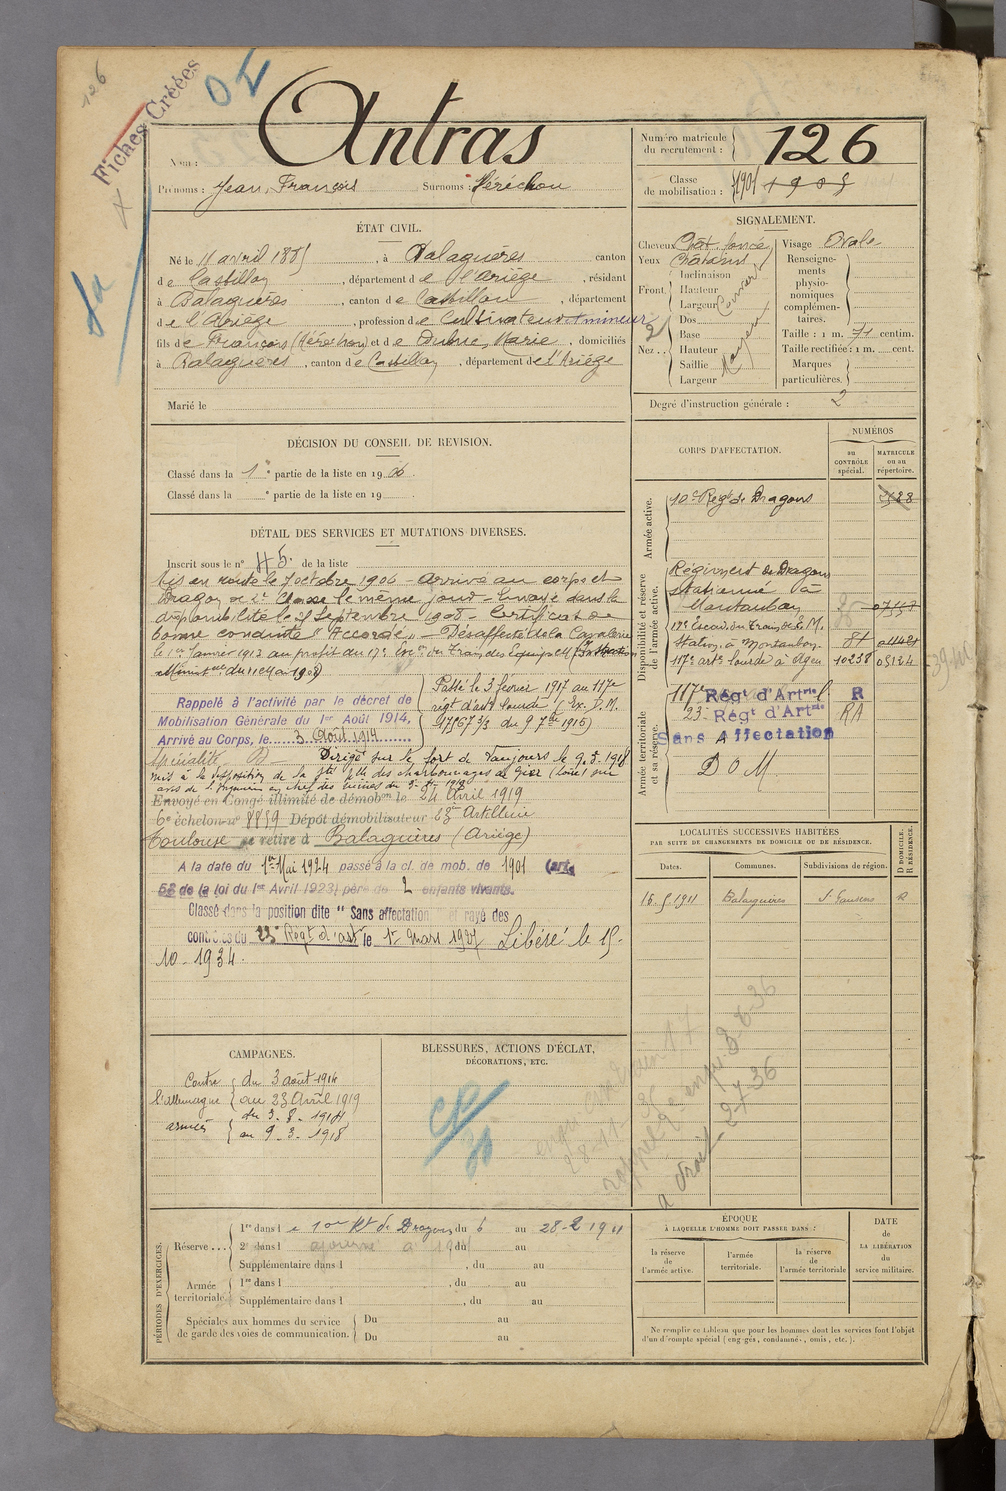 126
Fiches Créées
Antras
Nom :
Prénoms : Jean, François Surnoms : Héréchou
Numéro matricule du recrutement : 126
Classe de mobilisation : 1901 1905
ÉTAT CIVIL.
Né le 11 avril 1885, à Balaguères canton
de Castillon, département de l'Ariège, résidant
à Balaguères, canton de Castillon, département
de l'Ariège, profession de Cultivateur et mineur
fils de François (Héréchou) et de Marie, domiciliés
à Balaguères, canton de Castillon, département de l'Ariège
Marié le
SIGNALEMENT.
Cheveux Chât. foncé
Yeux Châtains
Front Inclinaison
Hauteur
Largeur
Nez Dos
Base
Hauteur
Saillie
Largeur
Visage Ovale
Renseignements physionomiques complémentaires.
Taille : 1 m. 71 centim.
Taille rectifiée : 1 m. cent.
Marques particulières.
Degré d'instruction générale : 2
DÉCISION DU CONSEIL DE REVISION.
Classé dans la 1e partie de la liste en 1906.
Classé dans la e partie de la liste en 19
DÉTAIL DES SERVICES ET MUTATIONS DIVERSES.
Inscrit sous le n° 45. de la liste
Mis en route le 7 octobre 1906 - Arrivé au corps et
Dragon de 2e Classe le même jour - Envoyé dans la
disponibilité le Septembre 1908 - Certificat de
bonne conduite "Accordé" - Désaffecté de la Cavalerie
le 1er Janvier 1912 au profit du 17e du Train des Equip. Mil
Rappelé à l'activité par le décret de
Mobilisation Générale du 1er Août 1914.
Arrivé au Corps, le 3 Août 1914
Passé le 3 février 1917 au 117e
régt d'art lourde (Ex. D.M.
Dirigé sur le fort de Vaujours le 9.3.1918
mis à la disposition de la
Envoyé en Congé illimité de démobon le 24 Avril 1919
6e échelon no 8859 Dépôt démobilisateur 23e Artillerie
Toulouse se retire à Balaguères (Ariège)
A la date du 1er Mai 1924 passé à la cl. de mob. de 1901 (art.
58 de la loi du 1er Avril 1923) père de 2 enfants vivants.
Classé dans la position dite "Sans affectation" et rayé des
contrôles du 23e Régt d'art le 1er mars 1927 Libéré le 15-
10-1934.
CORPS D'AFFECTATION.
NUMÉROS
au CONTRÔLE spécial.
MATRICULE ou au répertoire.
Armée active.
10e Régt de Dragons
Disponibilité et réserve de l'armée active.
Régiment de Dragons
stationné à
Montauban
17e Escon du Train des E. M.
Station. à Montauban 81
117e artie lourde à Agen 10238 05124
Armée territoriale et sa réserve.
117e Régt d'Artrie R
23e Régt d'Artrie RA
Sans Affectation
DOM
LOCALITÉS SUCCESSIVES HABITÉES
PAR SUITE DE CHANGEMENTS DE DOMICILE OU DE RÉSIDENCE.
Dates. Communes. Subdivisions de région. D DOMICILE. R RÉSIDENCE.
16.5.1911 Balaguères St Gaudens R
CAMPAGNES.
Contre l'Allemagne du 3 août 1914
au 23 Avril 1919
armées du 3-8-1914
au 9-3-1918
BLESSURES, ACTIONS D'ÉCLAT,
DÉCORATIONS, ETC.
PÉRIODES D'EXERCICES.
Réserve... 1re dans le 10e Rt de Dragons du 6 au 28-2 1911
2e dans l , du au
Supplémentaire dans l , du au
Armée territoriale 1re dans l , du au
Supplémentaire dans l , du au
Spéciales aux hommes du service
de garde des voies de communication. Du au
Du au
ÉPOQUE
À LAQUELLE L'HOMME DOIT PASSER DANS :
la réserve de l'armée active.
l'armée territoriale.
la réserve de l'armée territoriale
DATE de LA LIBÉRATION du service militaire.
Ne remplir ce tableau que pour les hommes dont les services font l'objet
d'un décompte spécial (engagés, condamnés, omis, etc.).